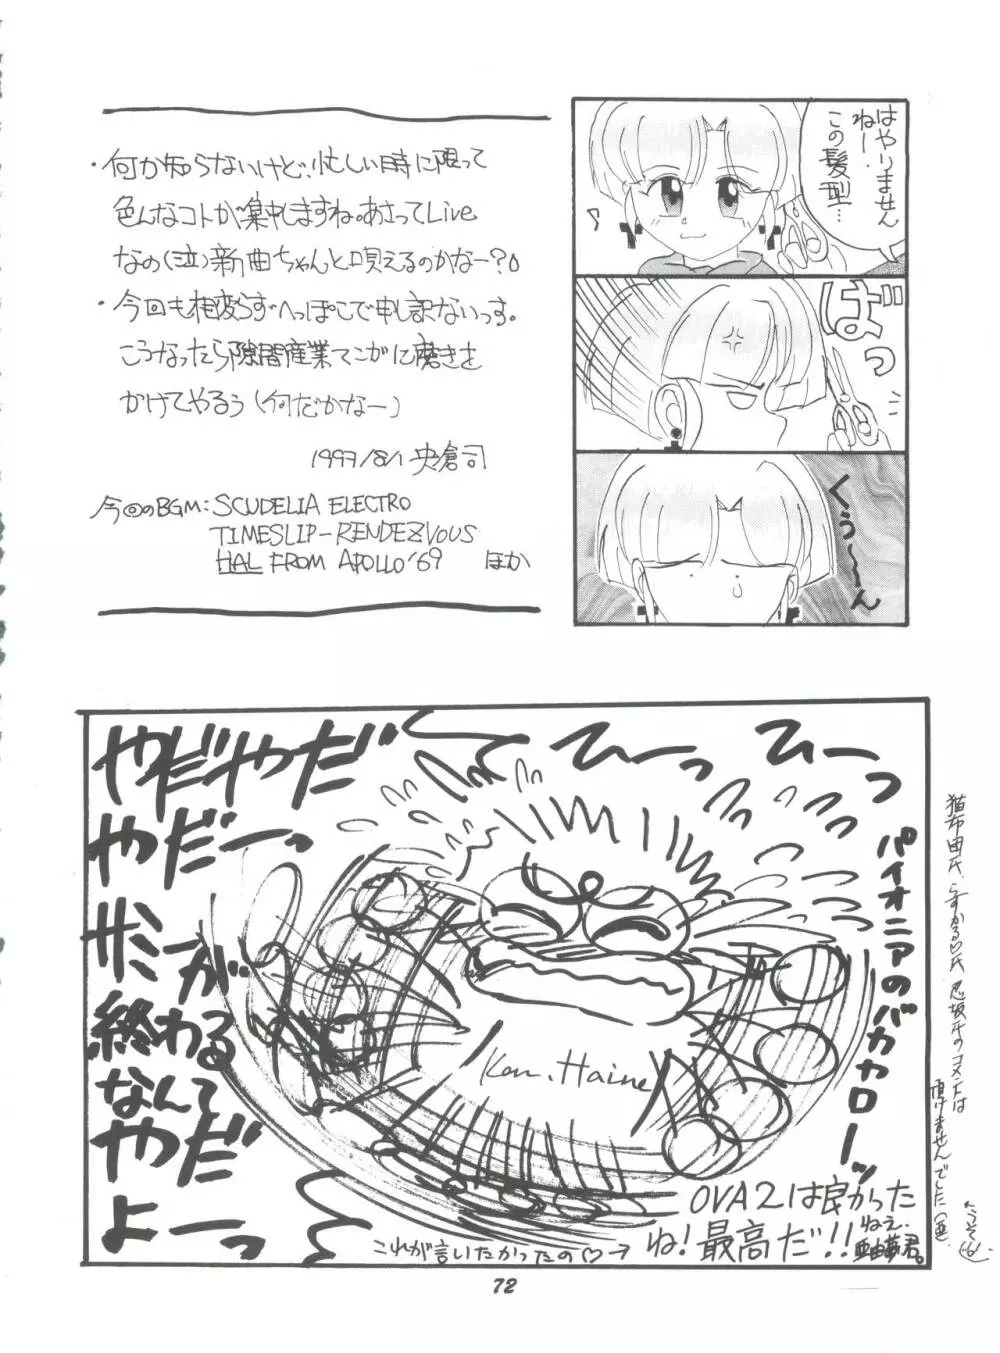 ・何か知らないけど、忙しい時に限って
色んなコトが集中しますね。あさってLive
なの(泣)新曲ちゃんと唄えるのかなー?
・今回も相変らずへっぽこで申し訳ないっす。
こうなったら隙間産業てこがに磨きを
かけてやるぅ(何だかなー)
1997/8/1 央倉司
今回のBGM: SCUDELIA ELECTRO
TIMESLIP-RENDEZVOUS
HAL FROM APOLLO'69 ほか
はやりません
ねー.
この髪型…
ばっ
くぅ〜〜ん
ひーっ ひーっ
パイオニアのバカヤローッ
やだやだ
やだーっ
サミーが
終わる
なんて
やだ
よーっ
Ken.Haine
OVA2は良かった
ね!最高だ!!ねぇ.
君。
これが言いたかったの♡→
猫布団氏、氏、忍坂氏のコメントは
頂けませんでした
72